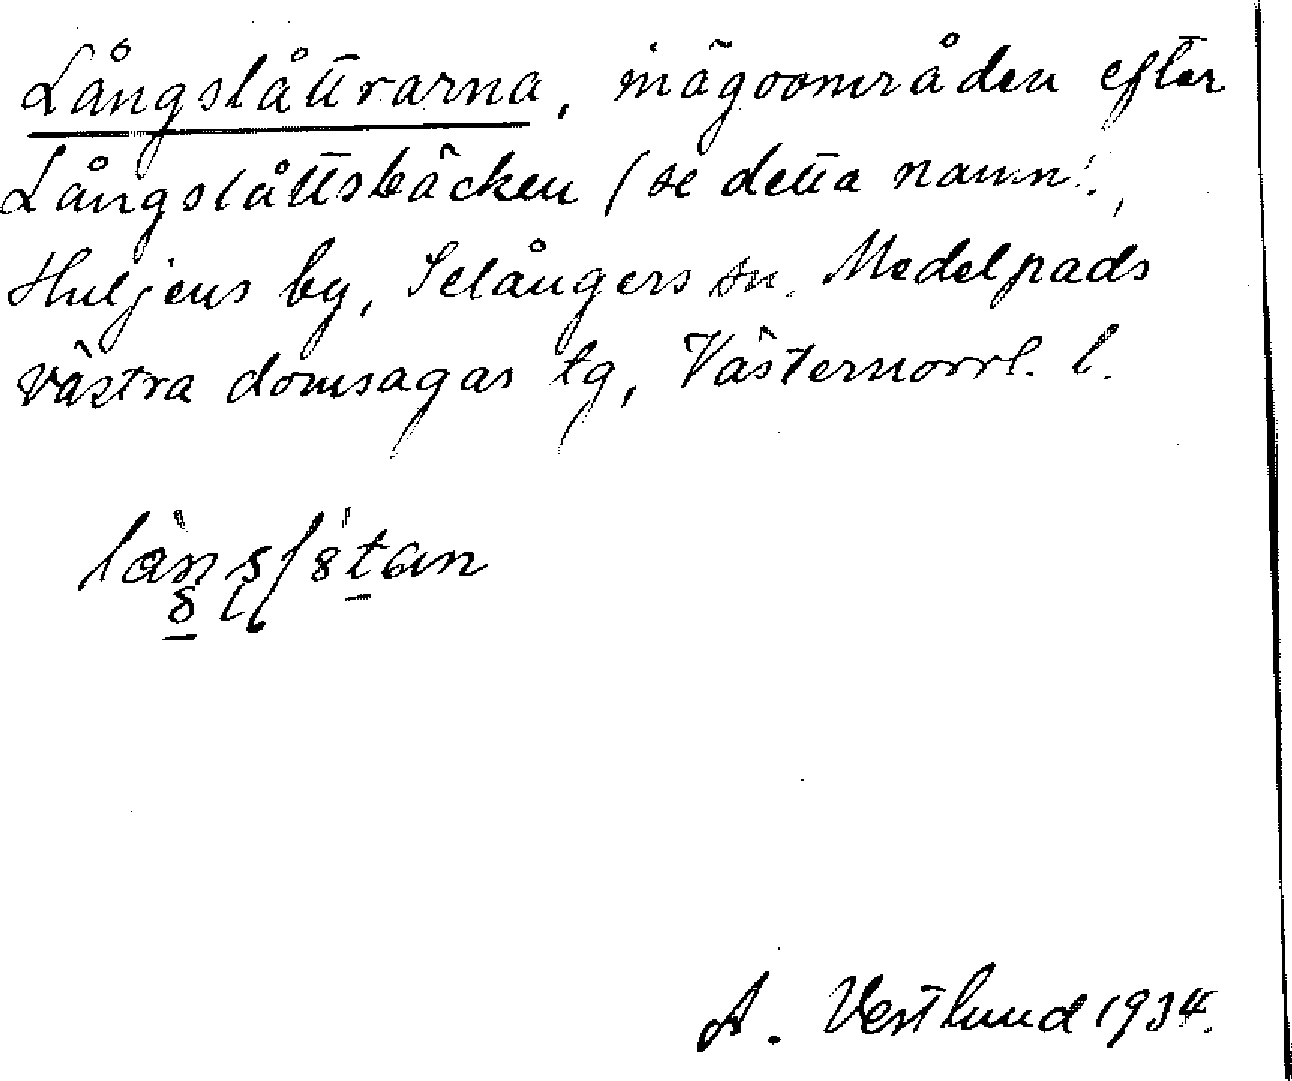 Långslåttrarna, inägoområden efter
Långslåttsbäcken (se detta namn!,
Huljens by, Selångers sn. Medelpads
västra domsagas tg, Västernorrl. l.
A. Vestlund 1934.